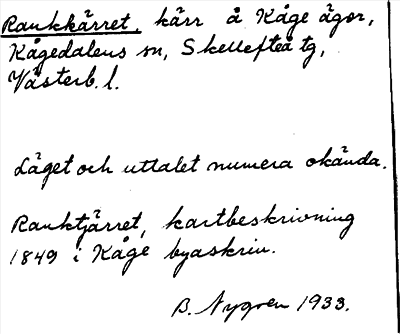 Rankkärret, kärr å Kåge ägor,
Kågedalens sn, Skellefteå tg,
Västerb. l.
Läget och uttalet numera okända.
Ranktjärret, kartbeskrivning
1849 i Kåge byaskrin.
B. Nygren 1933.